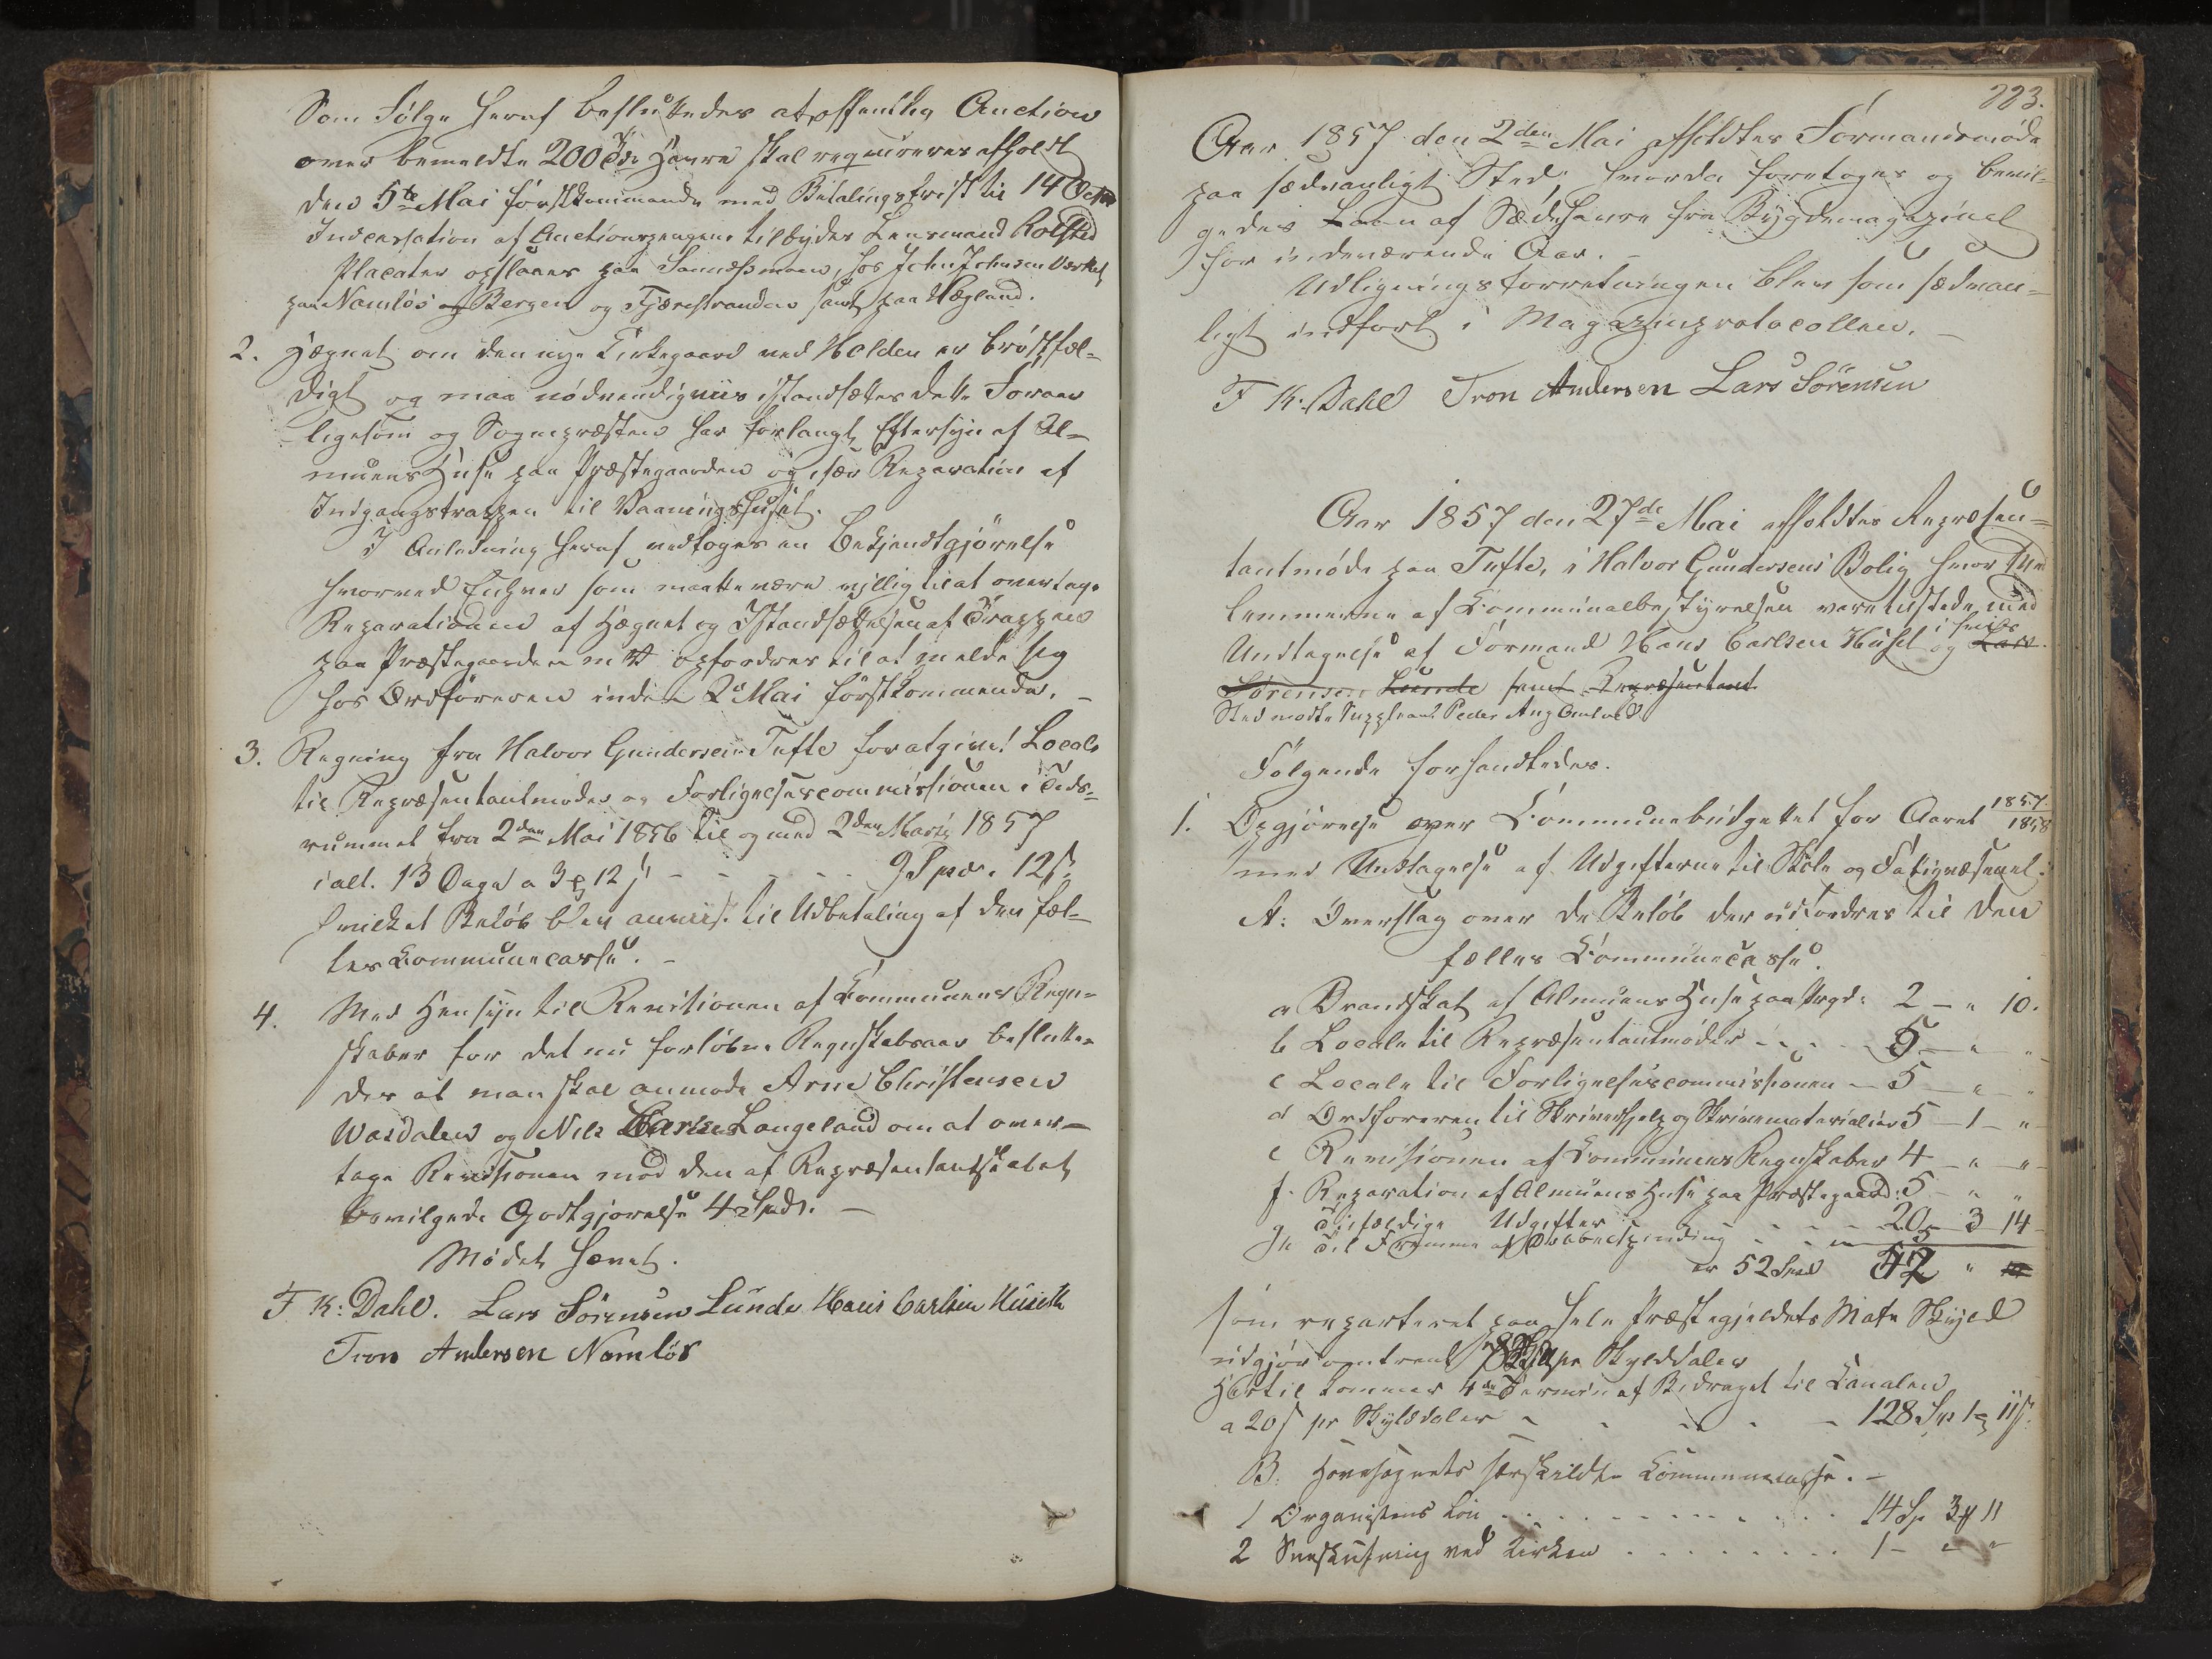 Som Følge heraf besluttedes at offentlig Auction
over bemeldte 200 Tdr Havre skal requireres afholdt
den 5te Mai førstkommende med Betalingsfrist til 14 Octbr
Indcassation af Auctionspengene tilbydes Lensmand Rolsted
Placater opslaaes paa Sannæsmoen, hos John Johnsen Værket
paa Namløs og Bergen og Fjærestranden samt paa Hægland.
2. Hegnet om den nye Kirkegaard ved Holden er brøstfæl-
digt og maa nødvendigviis istandsættes dette Foraar
ligesom og Sognepræsten har forlangt Eftersyn af Al-
muens Huse paa Præstegaarden og især Reparation af
Indgangstrappen til Vaaningshuset.
I Anledning heraf vedtoges en Bekjendtgjørelse
hvorved Enhver som maatte være villig til at overtage
Reparationen af Hegnet og Istandsættelsen af Trappen
paa Præstegaarden m V opfordres til at melde sig
hos Ordføreren inden 2d Mai førstkommende. -
3. Regning fra Halvor Gundersen Tufte for afgivet Locale
til Repræsentantmøder og Forligelsescommissionen i Tids-
rummet fra 2den Mai 1856 til og med 2den Marts 1857
ialt. 13 Dage a 3 12 ſ - - - - - 9 Spd. 12 ſ.
hvilket Beløb blev anviist til Udbetaling af den fæl-
les Kommunecasse. -
4. Med Hensyn til Revisionen af Kommunens Regn-
skaber for det nu forløbne Regnskabsaar beslutte-
des at man skal anmode Arne Christensen
Wasdalen og Nils Langeland om at over-
tage Revisionen mod den af Repræsentantskabet
bevilgede Godtgjørelse 4 Spd. -
Mødet hævet.
F. K: Dahl. Lars Sörensen Lunde Hans Carlsen Huseth
Tron Andersen Namlös
223.
Aar 1857 den 2den Mai afholdtes Formandsmøde
paa sædvanligt Sted, hvorda foretoges og bevil-
gedes Laan af Sædehavre fra Bygdemagazinet
for indeværende Aar. -
Udligningsforretningen blev som sædvan-
ligt indført i Magazinprotocollen. -
F K. Dahl Tron Andersen Lars Sörensen
Aar 1857 den 27de Mai afholdtes Repræsen-
tantmøde paa Tufte, i Halvor Gundersens Bolig hvor Med
lemmerne af Kommunalbestyrelsen vare tilstede med
Undtagelse af Formand Hans Carlsen Huset i hvis og Lars
Sørensen Lunde samt Repræsentant
Sted mødte Suppleant Peder Aug
Følgende forhandledes.
1. Opgjørelse over Kommunebudgettet for Aaret 1857/1858
med Undtagelse af Udgifterne til Skole og Fattigvæsenet.
A: Overslag over de Beløb der udfordres til den
fælles Kommunecasse.
a Brandskat af Almuens Huse paa Prgd: 2 - " 10.
b Locale til Repræsentantmøder - - - 5 - " "
c Locale til Forligelsescommissionen - 5 - " "
d Ordføreren til Skriverhjelp og Skrivematerialier 5 - 1 - "
e Revisionen af Kommunens Regnskaber 4 - " - "
f. Reparation af Almuens Huse paa Præstegaard: 5 - " "
g Tilfældige Udgifter - - - - 20 - 3 14 -
h Til Fremme af - - - 5
er 52 Spd 42 "
som reparteret paa hele Præstegjeldets Matr. Skyld
udgjør omtrent pr Skylddaler
Hertil kommer 4de Termin af Bidraget til Kanalen
a 20 ſ pr Skylddaler - - - - - 128 Sp 1 11 ſ.
B. Hovedsognets særskildte Kommunecasse. -
1 Organistens Løn . . . . . . . . . . . 14 Sp 3 11
2 Sneskufning ved Kirken . . . . . . . . . 1 - " "